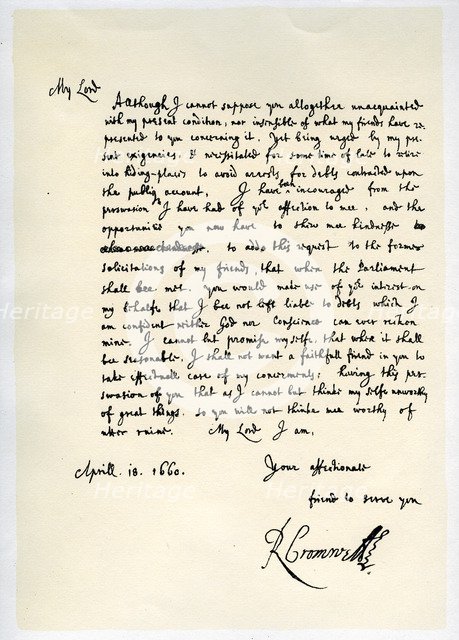 My Lord
Allthough I cannot suppose you alltogether unacquainted
with my present condition, nor insensible of what my friends have re-
presented to you concerning it. Yet being urged by my pre-
sent exigencies & necessitated for some time of late to retire
into hiding-places to avoid arrests for debts contracted upon
the publiq account, I have been incouraged from the
perswasion I have had of yor affection to mee, and the
opportunitie you now have to shew mee kindnesse
to adde this request to the former
solicitations of my friends, that when the Parliament
shall bee met. you would make use of yor interest on
my behalfe that I bee not left liable to debts which I
am confident neither God nor Conscience can ever reckon
mine. I cannot but promise my selfe, that when it shall
bee seasonable, I shall not want a faithfull friend in you to
take effectuall care of my concernments; having this per-
swation of you that as I cannot but thinke my selfe unworthy
of great things, so you will not thinke mee worthy of
utter ruine. My Lord I am,
Aprill. 18. 1660.
Your affectionate
friend to serve you
R Cromwell
Heritage
Heritage
Heritage
Heritage
Heritage